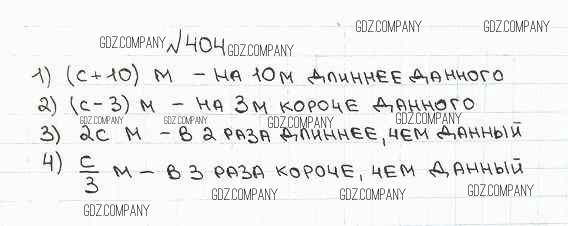 GDZ.COMPANY GDZ.COMPANY
GDZ.COMPANY №404 GDZ.COMPANY
1) (c+10) м – НА 10м ДЛИННЕЕ ДАННОГО
2) (c-3) м – НА 3м КОРОЧЕ ДАННОГО
GDZ.COMPANY GDZ.COMPANY GDZ.COMPANY GDZ.COMPANY
3) 2c м – В 2 РАЗА ДЛИННЕЕ, ЧЕМ ДАННЫЙ
4) c/3 м – В 3 РАЗА КОРОЧЕ, ЧЕМ ДАННЫЙ
GDZ.COMPANY GDZ.COMPANY GDZ.COMPANY
GDZ.COMPANY